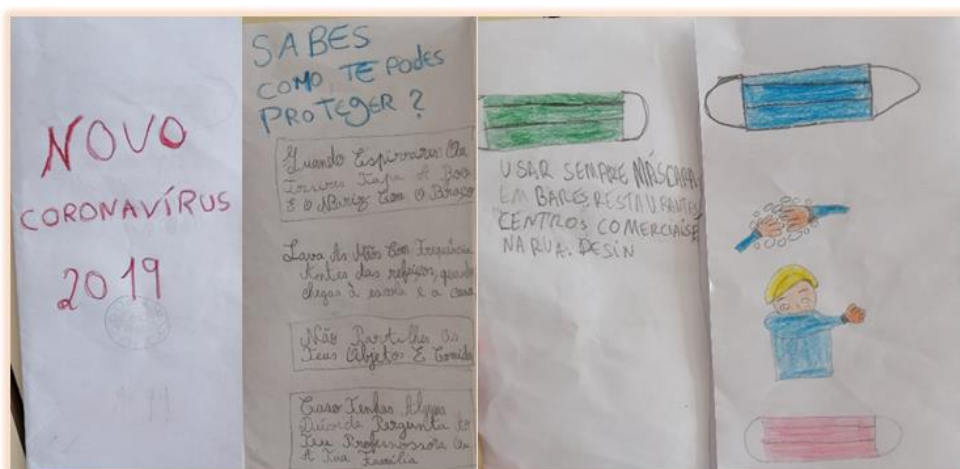 NOVO
CORONAVÍRUS
2019
SABES
COMO TE PODES
PROTEGER?
Quando Espirrares Ou
Tossires Tapa A Boca
E O Nariz Com O Braço
Lava As Mãos Com Frequência
Antes das refeições, quando
chegas à escola e a casa
Não Partilhes Os
Teus Objetos E Comida
Caso Tenhas Alguma
Dúvida Pergunta Ao
Teu Professossora Ou
A Tua Família
USAR SEMPRE MÁSCARA
EM BARES, RESTAURANTES,
CENTROS COMERCIAIS E
NA RUA. DESIN